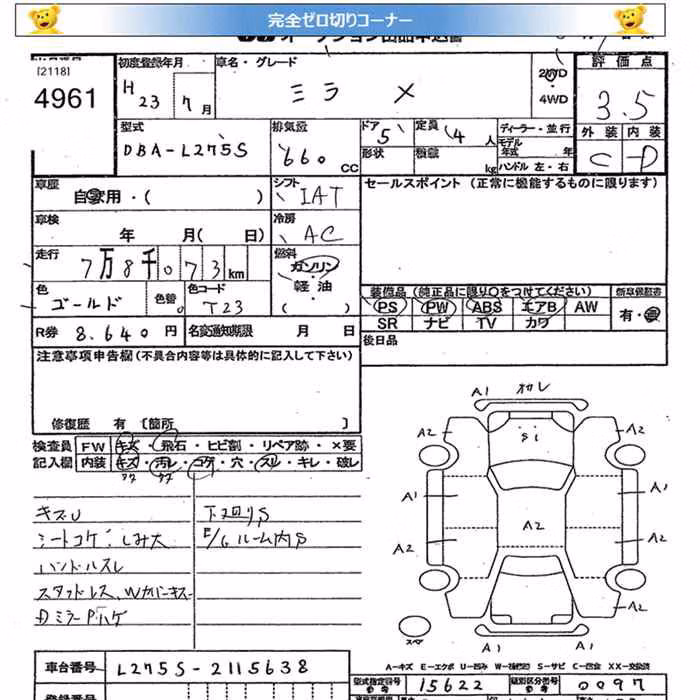 完全ゼロ切りコーナー
[2118]
4961
初度登録年月
H 23年 7月
車名・グレード
ミラ X
2WD
4WD
評価点
3.5
外装 内装
C D
型式
DBA-L275S
排気量
660 CC
ドア 5
形状
定員 4人
積載 kg
ディーラー・並行
モデル年式 年
ハンドル 左・右
車歴
自家用・( )
シフト
IAT
セールスポイント (正常に機能するものに限ります)
車検
年 月( 日)
冷房
AC
走行
7万8千073km
燃料
ガソリン
・
軽油
( )
色
ゴールド
色替
色コード
T23
装備品 (純正品に限り○をつけてください)
PS PW ABS エアB AW
SR ナビ TV カワ
新車保証書
有・無
R券 8.640円
名変通知期限 月 日
後日品
注意事項申告欄 (不具合内容等は具体的に記入して下さい)
修復歴 有 [箇所 ]
検査員
記入欄
FW キズ・飛石・ヒビ割・リペア跡・×要
内装 キズ・汚レ・コゲ・穴・スレ・キレ・破レ
キズU
シートコゲ、しみ大
ハンドルスレ
スタッドレス、Wカバーキズ
Dミラー Pハゲ
下廻りS
E/Gルーム内S
A1
A2
S1
A2
A1
A1
A2
A2
A2
A2
スペア
A1
A1
A-キズ E-エクボ U-凹み S-サビ XX-交換済
車台番号
L275S-2115638
登録番号
型式指定番号
参考
15622
類別区分番号
参考
0097